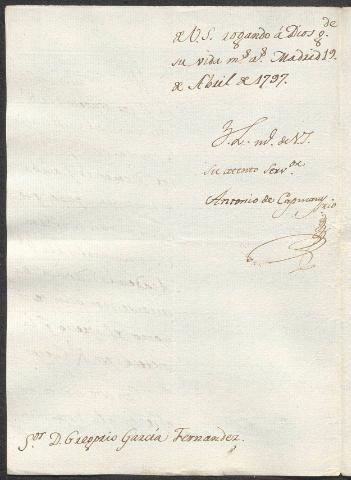 de V.S. rogando á Dios g.de
su vida m.s a.s Madrid 19.
de Abril de 1797.
B. L. M. de V.S.
su atento Serv.or
Antonio de Capmany
S.or D. Gregorio García Fernandez.